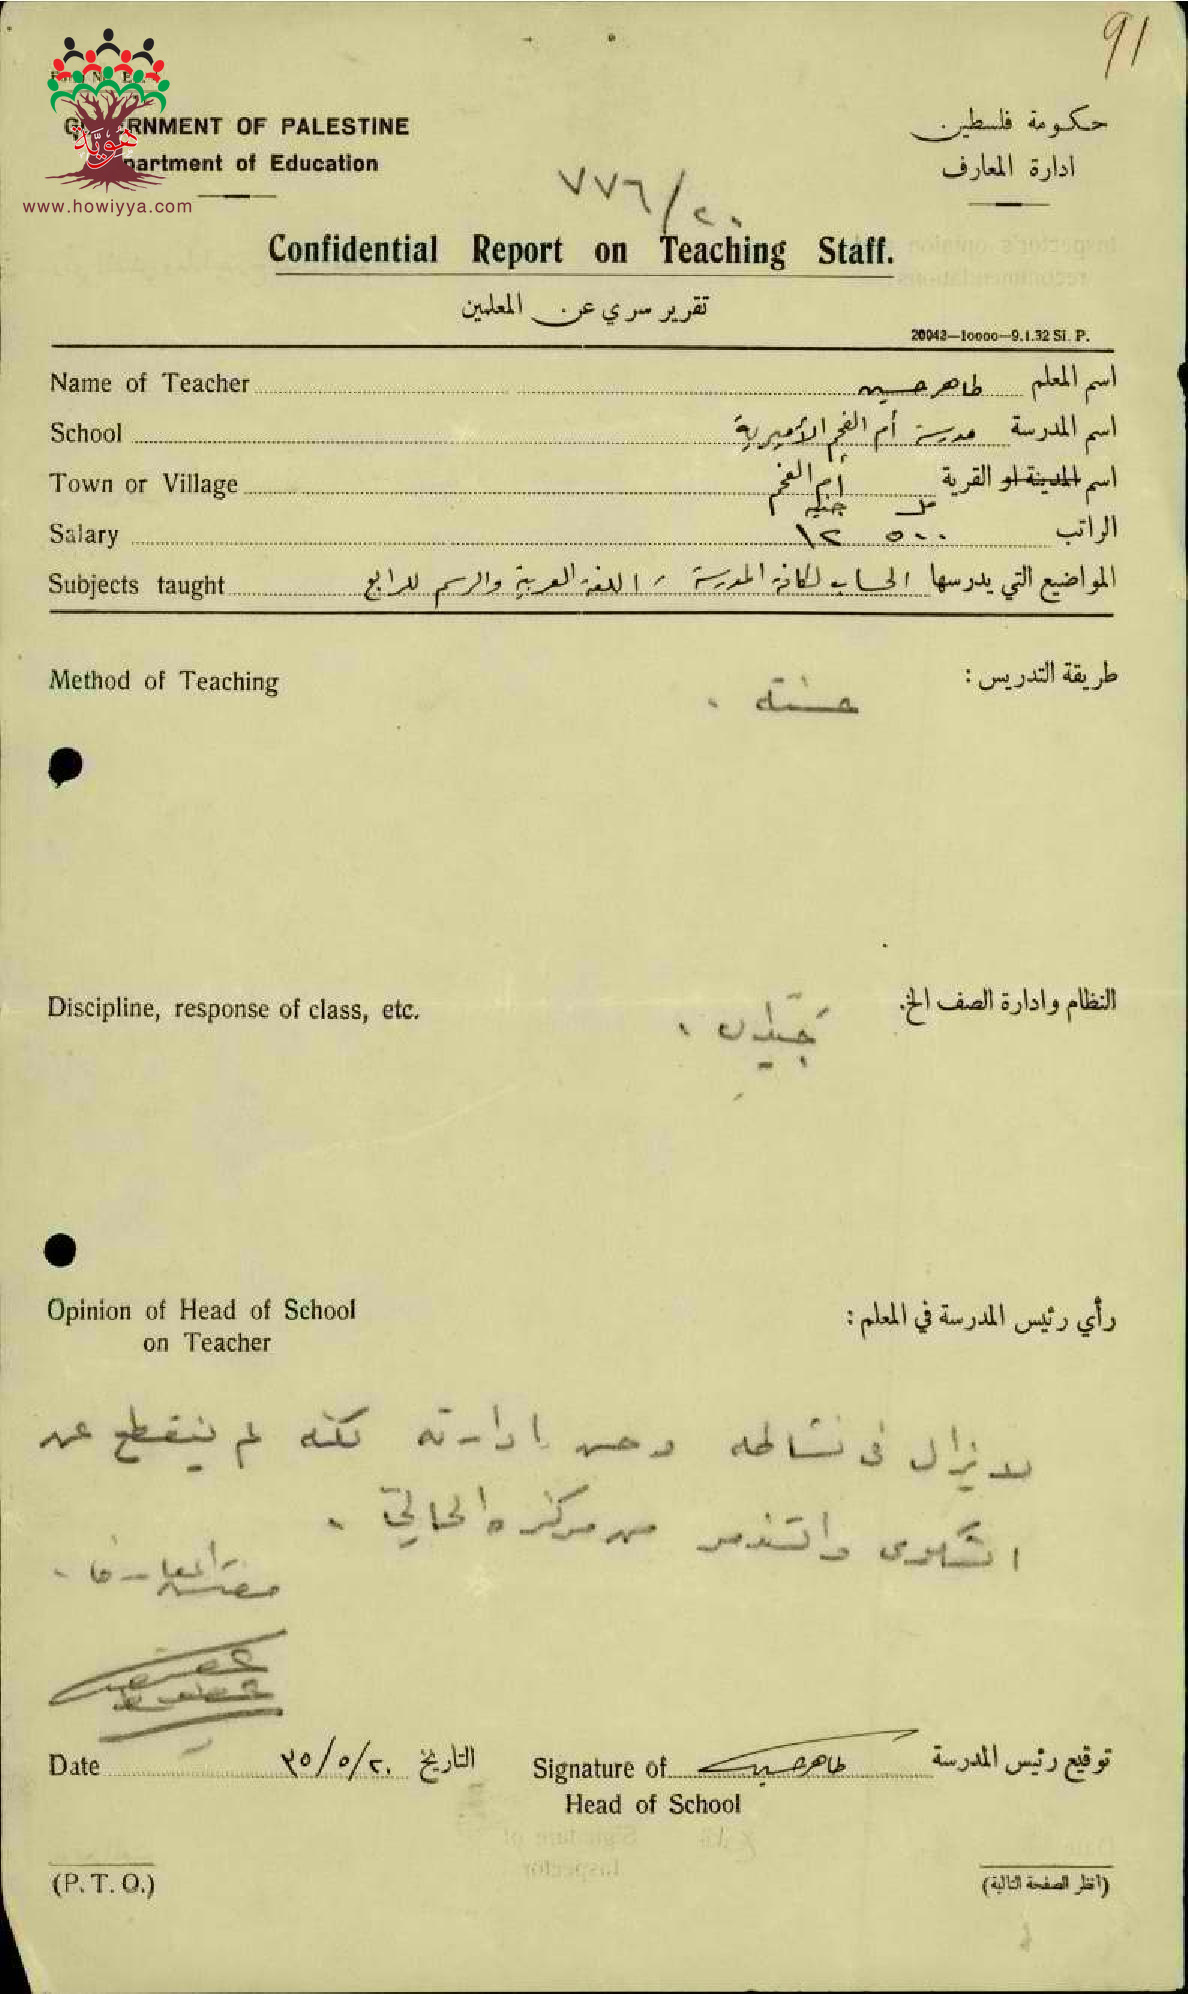 91
GOVERNMENT OF PALESTINE
Department of Education
حكومة فلسطين
ادارة المعارف
هوية
www.howiyya.com
٧٧٦/٢٠
Confidential Report on Teaching Staff.
تقرير سري عن المعلمين
20942—10000—9.1.32 Si. P.
Name of Teacher طاهر حسين اسم المعلم
School مدرسة أم الفحم الأميرية اسم المدرسة
Town or Village أم الفحم اسم المدينة او القرية
مل جنيه
Salary ١٢ ٥٠٠ الراتب
Subjects taught الحساب لكافة المدرسة، اللغة العربية والرسم للرابع المواضيع التي يدرسها
Method of Teaching طريقة التدريس :
حسنة .
Discipline, response of class, etc. النظام وادارة الصف الخ.
جيدان .
Opinion of Head of School
on Teacher
رأي رئيس المدرسة في المعلم :
لا يزال في نشاطه وحسن ادارته لكنه لم ينقطع عن
الشكوى والتذمر من مركزه الحالي .
مفتش المعارف .
Date ٣٥/٥/٢٠ التاريخ Signature of طاهر حسين توقيع رئيس المدرسة
Head of School
(P. T. O.)
(انظر الصفحة التالية)